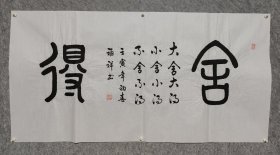 舍
大舍大得
小舍小得
不舍不得
得
壬寅年初春